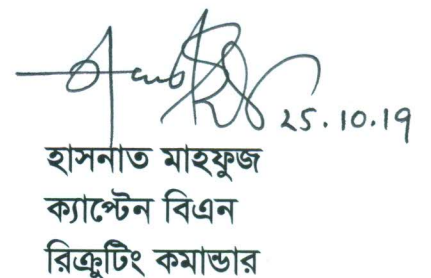 25.10.19
হাসনাত মাহফুজ
ক্যাপ্টেন বিএন
রিক্রুটিং কমান্ডার